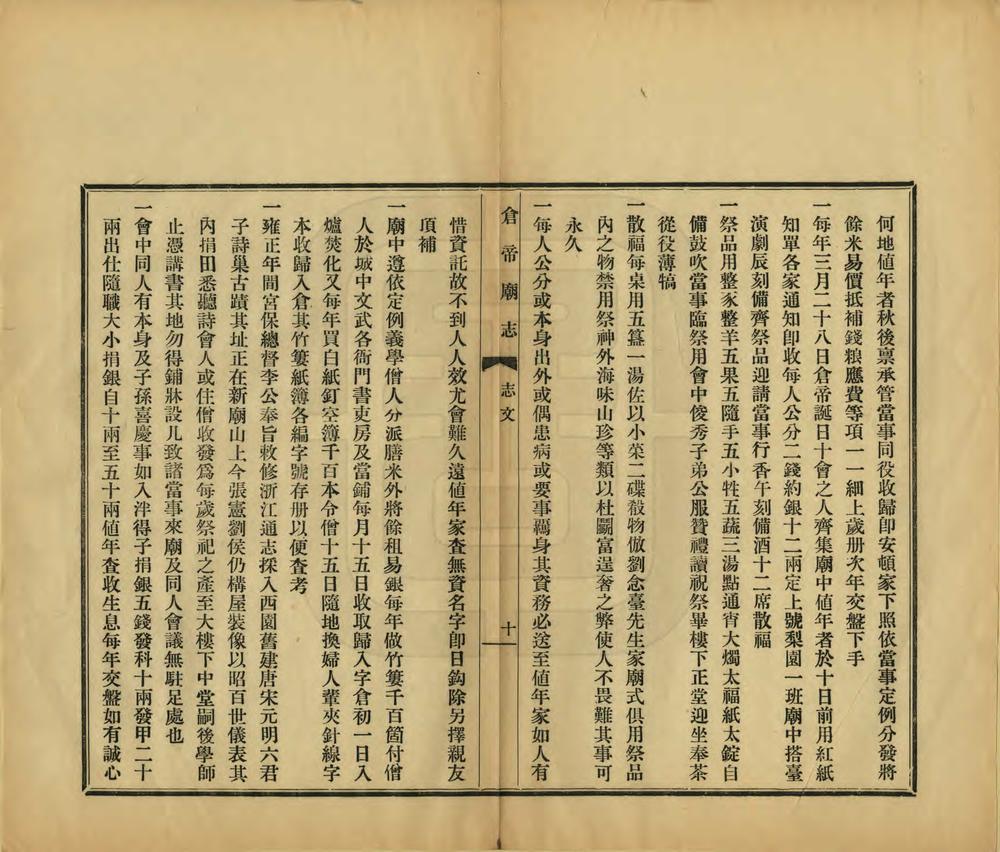 何地値年者秋後禀承管當事同役收歸卽安頓家下照依當事定例分發將
餘米易價抵補錢粮應費等項一一細上歲册次年交盤下手
一每年三月二十八日倉帝誕日十會之人齊集廟中値年者於十日前用紅紙
知單各家通知卽收每人公分二錢約銀十二兩定上號梨園一班廟中搭臺
演劇辰刻備齊祭品迎請當事行香午刻備酒十二席散福
一祭品用整豕整羊五果五隨手五小牲五蔬三湯點通宵大燭太福紙太錠自
備鼓吹當事臨祭用會中俊秀子弟公服贊禮讀祝祭畢樓下正堂迎坐奉茶
從役薄犒
一散福每桌用五簋一湯佐以小菜二碟殽物倣劉念臺先生家廟式俱用祭品
內之物禁用祭神外海味山珍等類以杜鬭富逞奢之弊使人不畏難其事可
永久
一每人公分或本身出外或偶患病或要事羈身其資務必送至値年家如人有
倉帝廟志
志文
十
惜資託故不到人人效尤會難久遠値年家査無資名字卽日鈎除另擇親友
項補
一廟中遵依定例義學僧人分派膳米外將餘租易銀每年做竹簍千百箇付僧
人於城中文武各衙門書吏房及當鋪每月十五日收取歸入字倉初一日入
爐焚化又每年買白紙釘空簿千百本令僧十五日隨地換婦人輩夾針線字
本收歸入倉其竹簍紙簿各編字號存册以便査考
一雍正年間宮保總督李公奉旨敕修浙江通志採入西園舊建唐宋元明六君
子詩巢古蹟其址正在新廟山上今張憲劉侯仍構屋裝像以昭百世儀表其
內捐田悉聽詩會人或住僧收發爲每歲祭祀之產至大樓下中堂嗣後學師
止憑講書其地勿得鋪牀設几致諸當事來廟及同人會議無駐足處也
一會中同人有本身及子孫喜慶事如入泮得子捐銀五錢發科十兩發甲二十
兩出仕隨職大小捐銀自十兩至五十兩値年查收生息每年交盤如有誠心